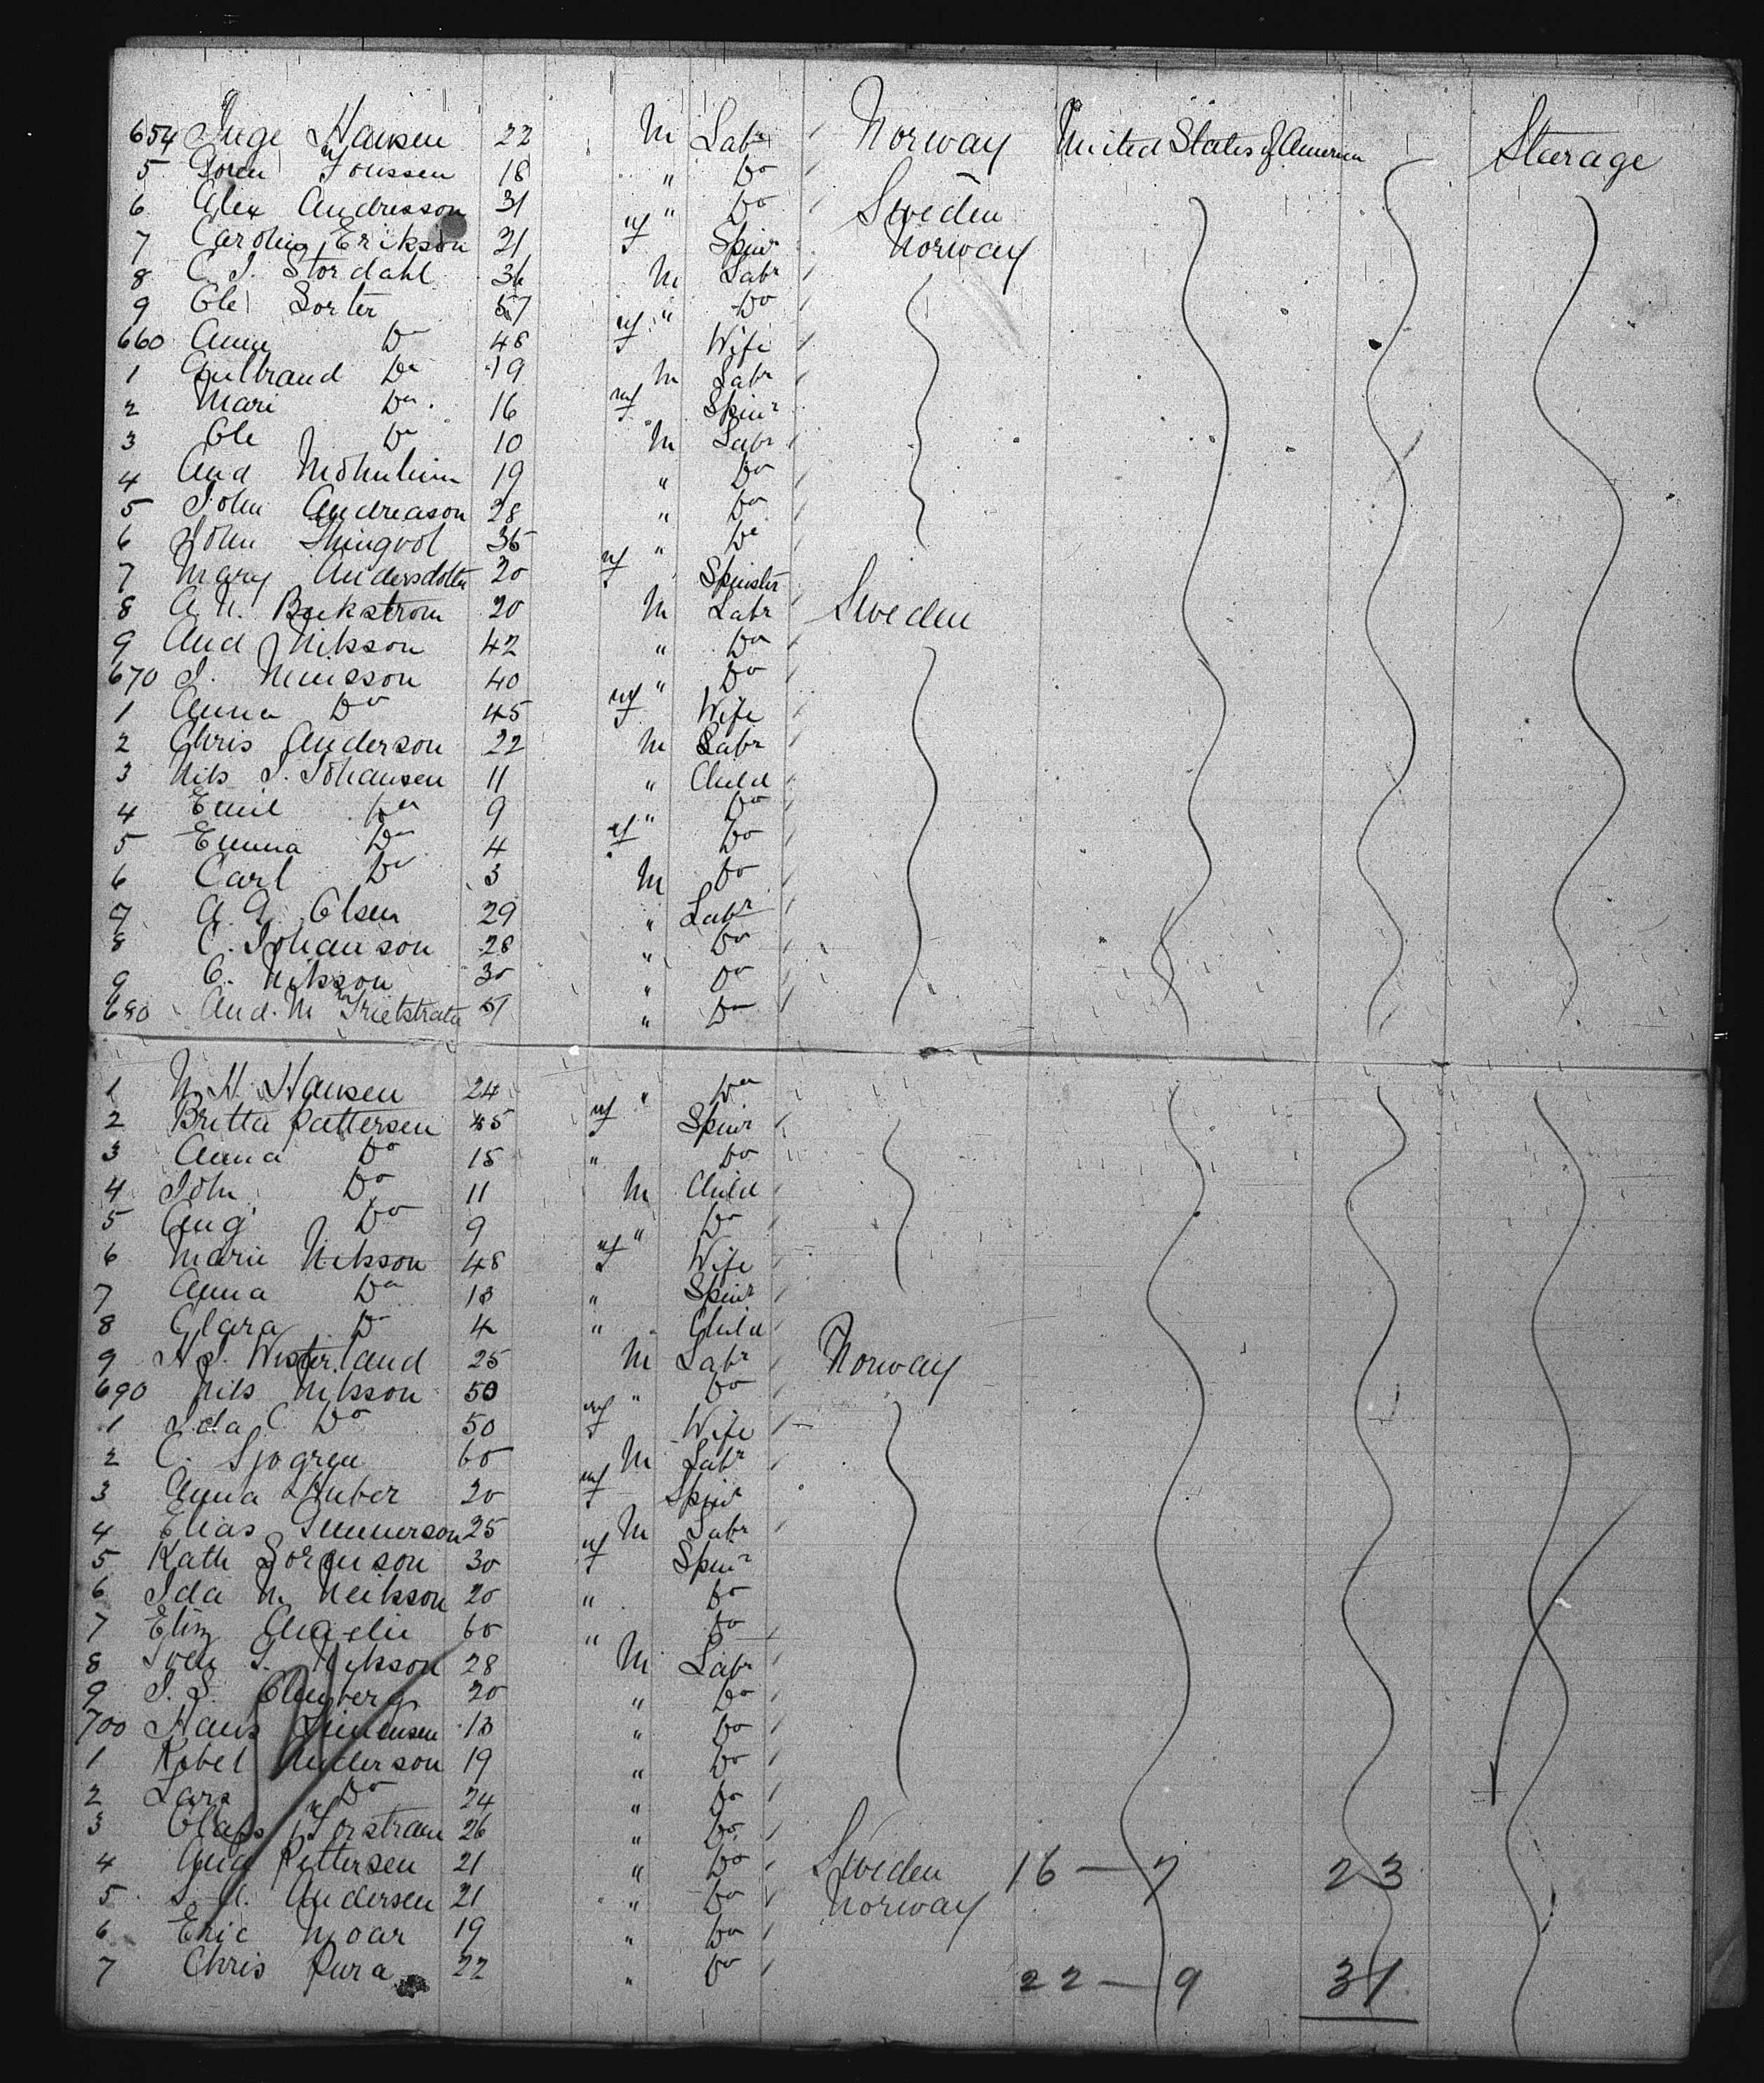 654 Inge Hansen 22 M Labr Norway United States of America Steerage
5 Soren Toussen 18 " Do
6 Alex Andresson 31 " Do Sweden
7 Carolina Erikson 21 f Spinr Norway
8 C. J. Stordahl 36 M Labr
9 Ole Sorter 57 " Do
660 Anna Do 48 f Wife
1 Gulbrand Do 19 M Labr
2 Mari Do 16 f Spinr
3 Ole Do 10 M Labr
4 And 19 " Do
5 John Andreason 28 " Do
6 John 36 " Do
7 Mary Andersdotter 20 f Spinster
8 A. N. Beckstrom 20 M Labr Sweden
9 And Nilsson 42 " Do
670 J. 40 " Do
1 Anna Do 45 f Wife
2 Chris Anderson 22 M Labr
3 Nils J. Johansen 11 " Child
4 Emil Do 9 " Do
5 Emma Do 4 f Do
6 Carl Do 3 M Do
7 A. G. Olsen 29 " Labr
8 C. Johanson 28 " Do
9 C. Nilsson 30 " Do
680 And. M 51 " Do
1 N. H. Hansen 24 " Do
2 Britta Pattersen 45 f Spinr
3 Anna Do 15 " Do
4 John Do 11 M Child
5 Aug Do 9 " Do
6 Marie Nilsson 48 f Wife
7 Anna Do 18 " Spinr
8 Clara Do 4 " Child
9 Westerland 25 M Labr Norway
690 Nils Nilsson 50 " Do
1 Ida C Do 50 f Wife
2 C. Sjogren 60 M Labr
3 Anna Huber 20 f Spinr
4 Elias Gunnerson 25 M Labr
5 Kath Sorenson 30 f Spinr
6 Ida N. Neilsson 20 " Do
7 Eliz 60 " Do
8 Sven Nilsson 28 M Labr
9 J. S. 20 " Do
700 Hans Simensen 18 " Do
1 Anderson 19 " Do
2 Lars Do 24 " Do
3 Forstram 26 " Do
4 Aug Pettersen 21 " Do Sweden 16 — 7 23
5 Andersen 21 " Do Norway
6 Eric Moar 19 " Do
7 Chris Pura 22 " Do 22 — 9 31